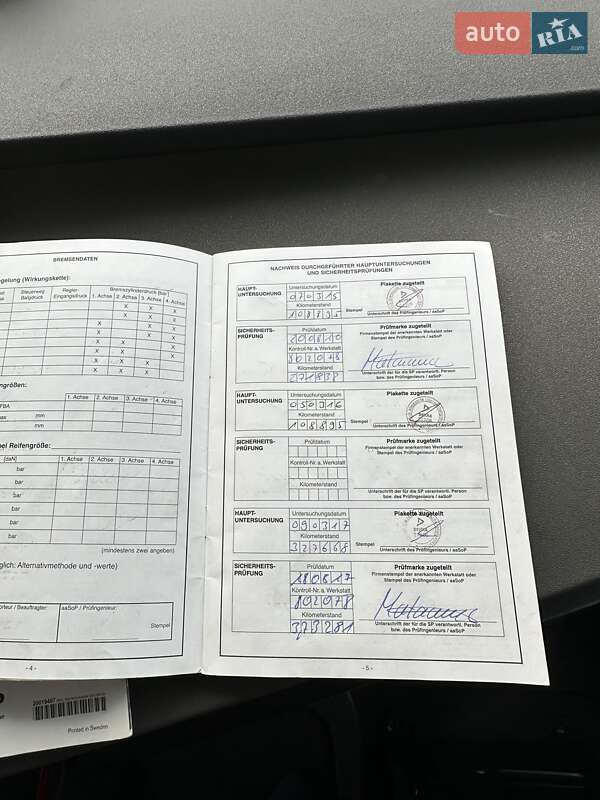 auto RIA .com
BREMSENDATEN
egelung (Wirkungskette):
Steuerweg Balgdruck
Regler- Eingangsdruck
Bremszylinderdruck [bar]
1. Achse 2. Achse 3. Achse 4. Achse
X X X
X X X
X
X X X
X X
X X
X X
X X X
X X X
engrößen:
1. Achse 2. Achse 3. Achse 4. Achse
FBA
max mm
mm
bei Reifengröße:
[daN] 1. Achse 2. Achse 3. Achse 4. Achse
bar
bar
bar
bar
bar
(mindestens zwei angeben)
glich: Alternativmethode und -werte)
aaSoP / Prüfingenieur:
Stempel
- 4 -
20019407
Printed in Sweden
NACHWEIS DURCHGEFÜHRTER HAUPTUNTERSUCHUNGEN
UND SICHERHEITSPRÜFUNGEN
HAUPT-
UNTERSUCHUNG
Untersuchungsdatum
070315
Kilometerstand
Stempel
Plakette zugeteilt
Unterschrift des Prüfingenieurs / aaSoP
SICHERHEITS-
PRÜFUNG
Prüfdatum
Kontroll-Nr. a. Werkstatt
Kilometerstand
Prüfmarke zugeteilt
Firmenstempel der anerkannten Werkstatt oder
Stempel des Prüfingenieurs / aaSoP
Unterschrift der für die SP verantwortl. Person
bzw. des Prüfingenieurs / aaSoP
HAUPT-
UNTERSUCHUNG
Untersuchungsdatum
050316
Kilometerstand
108895
Stempel
Plakette zugeteilt
Unterschrift des Prüfingenieurs / aaSoP
SICHERHEITS-
PRÜFUNG
Prüfdatum
Kontroll-Nr. a. Werkstatt
Kilometerstand
Prüfmarke zugeteilt
Firmenstempel der anerkannten Werkstatt oder
Stempel des Prüfingenieurs / aaSoP
Unterschrift der für die SP verantwortl. Person
bzw. des Prüfingenieurs / aaSoP
HAUPT-
UNTERSUCHUNG
Untersuchungsdatum
090317
Kilometerstand
327668
Stempel
Plakette zugeteilt
Unterschrift des Prüfingenieurs / aaSoP
SICHERHEITS-
PRÜFUNG
Prüfdatum
180817
Kontroll-Nr. a. Werkstatt
192978
Kilometerstand
373281
Prüfmarke zugeteilt
Firmenstempel der anerkannten Werkstatt oder
Stempel des Prüfingenieurs / aaSoP
Unterschrift der für die SP verantwortl. Person
bzw. des Prüfingenieurs / aaSoP
- 5 -